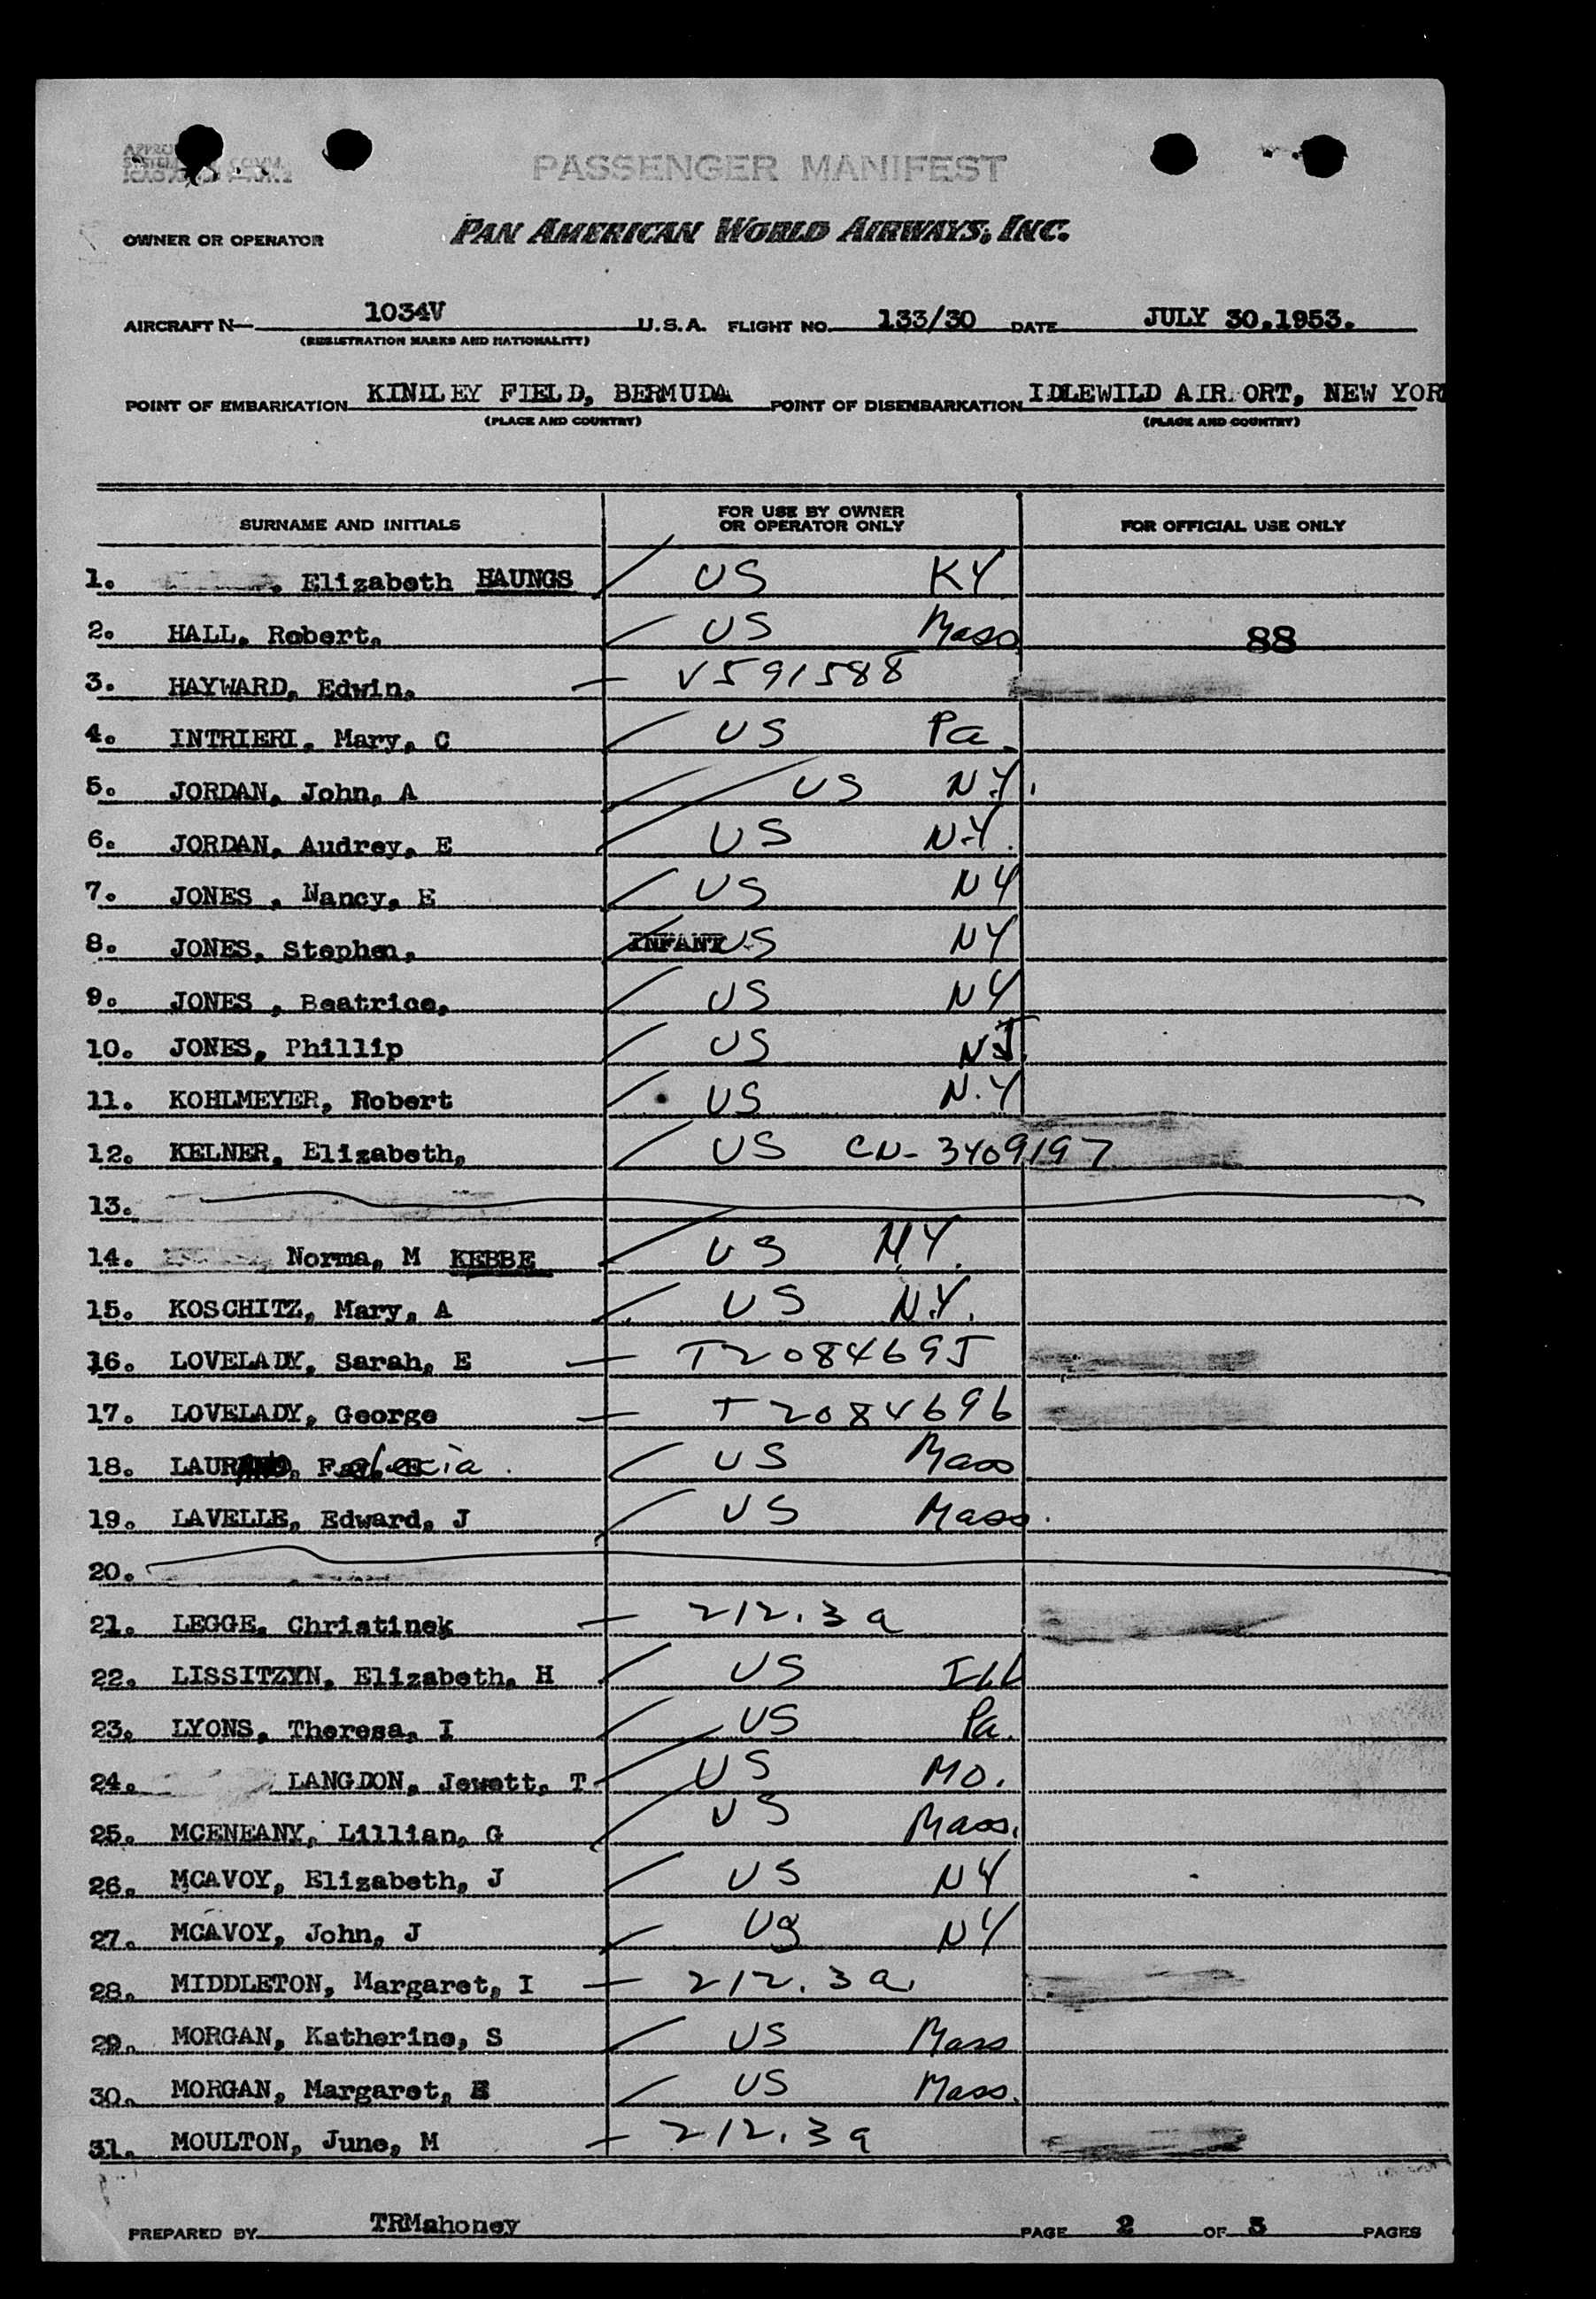 PASSENGER MANIFEST
OWNER OR OPERATOR PAN AMERICAN WORLD AIRWAYS, INC.
AIRCRAFT N 1034V U.S.A. FLIGHT NO. 133/30 DATE JULY 30.1953.
(REGISTRATION MARKS AND NATIONALITY)
POINT OF EMBARKATION KINDLEY FIELD, BERMUDA POINT OF DISEMBARKATION IDLEWILD AIR ORT, NEW YOR
(PLACE AND COUNTRY) (PLACE AND COUNTRY)
SURNAME AND INITIALS FOR USE BY OWNER OR OPERATOR ONLY FOR OFFICIAL USE ONLY
1. , Elizabeth HAUNGS US KY
2. HALL, Robert, US Mass 88
3. HAYWARD, Edwin, V591588
4. INTRIERI, Mary, C US Pa.
5. JORDAN, John, A US N.Y.
6. JORDAN, Audrey, E US N.Y.
7. JONES , Nancy, E US NY
8. JONES, Stephen, INFANT US NY
9. JONES , Beatrice, US NY
10. JONES, Phillip US NJ
11. KOHLMEYER, Robert US N.Y
12. KELNER, Elizabeth, US CN- 3409197
13.
14. Norma, M KEBBE US N.Y.
15. KOSCHITZ, Mary, A US N.Y.
16. LOVELADY, Sarah, E T2084695
17. LOVELADY, George T2084696
18. LAUR US Mass
19. LAVELLE, Edward, J US Mass.
20.
21. LEGGE, Christinek 212.3a
22. LISSITZYN, Elizabeth, H US Ill
23. LYONS, Theresa, I US Pa.
24. LANGDON, Jewett, T US MO.
25. MCENEANY, Lillian, G US Mass.
26. MCAVOY, Elizabeth, J US NY
27. MCAVOY, John, J US NY
28. MIDDLETON, Margaret, I 212.3a
29. MORGAN, Katherine, S US Mass
30. MORGAN, Margaret, E US Mass.
31. MOULTON, June, M 212.3a
PREPARED BY TRMahoney PAGE 2 OF 3 PAGES